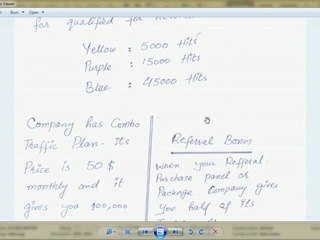 Viewer
Burn
Open
for qualified for
Yellow : 5000 Hits
Purple : 15000 Hits
Blue : 45000 Hits
Company has Combo
Traffic Plan. Its
Price is 50 $
monthly and it
gives you 100,000
Referral Bonus
When your Refferal
Purchase panel or
Package Company gives
You half of its